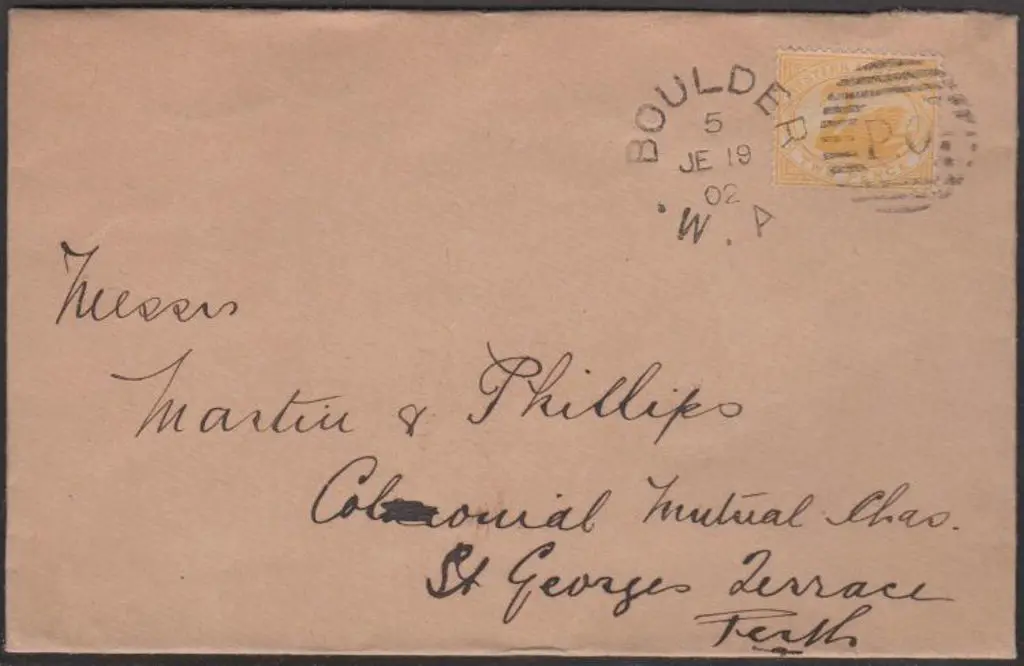 BOULDER
5
JE 19
02
W.A
PO
Messrs
Martin & Phillips
Colonial Mutual Chas.
St Georges Terrace
Perth